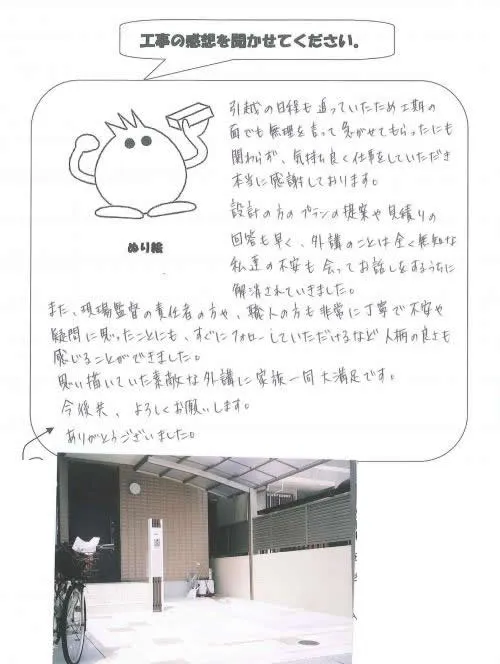 工事の感想を聞かせてください。
引越の日程も迫っていたため工期の
面でも無理を言って急がせてもらったにも
関わらず、気持ち良く仕事をしていただき
本当に感謝しております。
設計の方のプランの提案や見積りの
回答も早く、外講のことは全く無知な
私達の不安も会ってお話しをするうちに
解消されていきました。
ぬり絵
また、現場監督の責任者の方や、職人の方も非常に丁寧で不安や
疑問に思ったことにも、すぐにフォローしていただけるなど人柄の良さも
感じることができました。
思い描いていた素敵な外講に家族一同大満足です。
今後共、よろしくお願いします。
ありがとうございました。